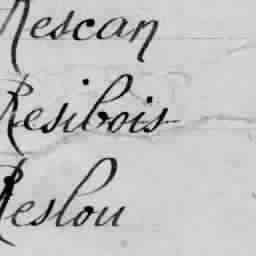 Rescan
Resibois
Reslou